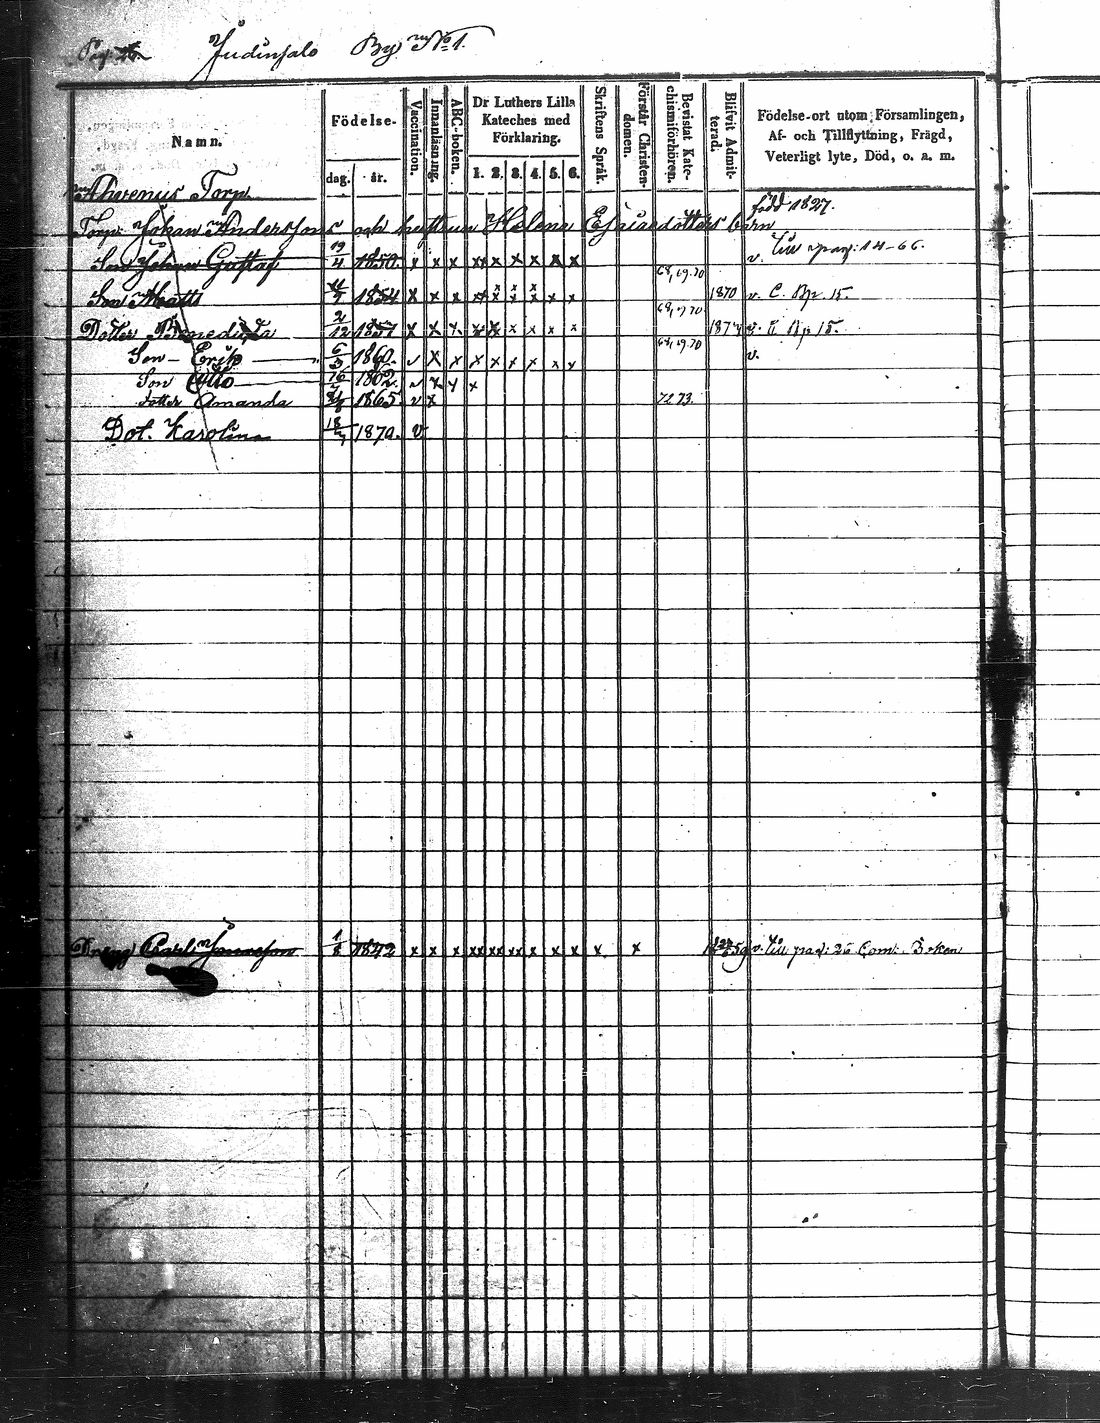 Pag. Judinsalo By No 1.
Namn.
Födelse-
dag. år.
Vaccination.
Innanläsning.
ABC-boken.
Dr Luthers Lilla Kateches med Förklaring.
1. 2. 3. 4. 5. 6.
Skriftens Språk.
Förstår Christendomen.
Bevistat Katechismiförhören.
Blifvit Admitterad.
Födelse-ort utom Församlingen,
Af- och Tillflyttning, Frägd,
Veterligt lyte, Död, o. a. m.
Ahvenus Torp
född 1827.
Torp. Johan Anderssons och hustrun Helena Esaiaedotters barn
Son Johan Gustaf 19/4 1850. x x x xx x x x x x v. pag: 14-66.
68,69.70
Son Matts 1854 x x x x x x x x x 1870 v. C. Bp. 15.
68,69.70
Dotter Benedicta 2/12 1857 x x x x x x x x x v. 15.
68,69.70
Son Erik 1860. v x x x x x x x x v.
Son Otto 1862. v x x x
Dotter Amanda 1865 v x 72 73.
Dot. Karolina 18/7 1870. v
Dreng 1/8 1842 x x x xx xx xx x x x x x v. pag: 26 Com: Boken